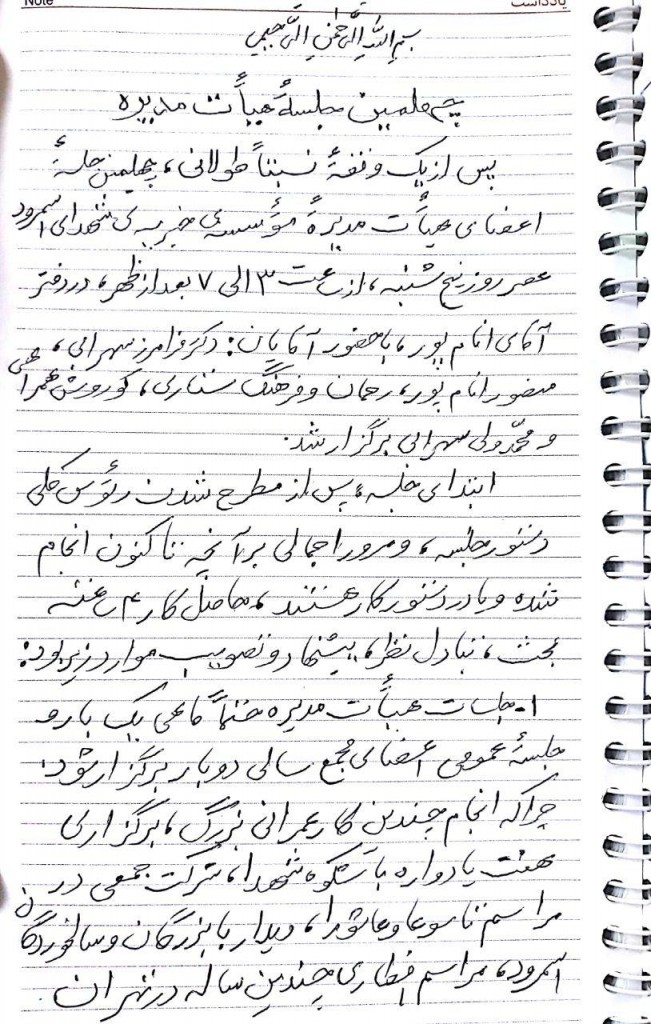 Note
یادداشت
بسم الله الرحمن الرحیم
چهلمین جلسهٔ هیأت مدیره
پس از یک وقفهٔ نسبتاً طولانی، چهلمین جلسهٔ
اعضای هیأت مدیرهٔ مؤسسه‌ی خیریه‌ی شهدای اسمرود
عصر روز پنج شنبه، از ساعت ۳ الی ۷ بعد از ظهر، در دفتر
آقای امام پور، با حضور آقایان: دکتر فرامرز سهرابی،
منصور امام پور، رحمان و فرهنگ ستاری، کوروش همراهی
و محمدولی سهرابی برگزار شد.
ابتدای جلسه، پس از مطرح شدن رئوس کلی
دستور جلسه، و مرور اجمالی بر آنچه تا کنون انجام
شده و یا در دستور کار هستند، حاصل کار ۴ ساعته
بحث، تبادل نظر، پیشنهاد و تصویب موارد زیر بود:
۱- جلسات هیأت مدیره حتماً ماهی یک بار و
جلسهٔ عمومی اعضای مجمع سالی دو بار برگزار شود.
چرا که انجام چندین کار عمرانی بزرگ، برگزاری
هفت یادواره با شکوه شهدا، شرکت جمعی در
مراسم تاسوعا و عاشورا، دیدار با بزرگان و سالخوردگان
اسمرود، مراسم افطاری چندین ساله در تهران